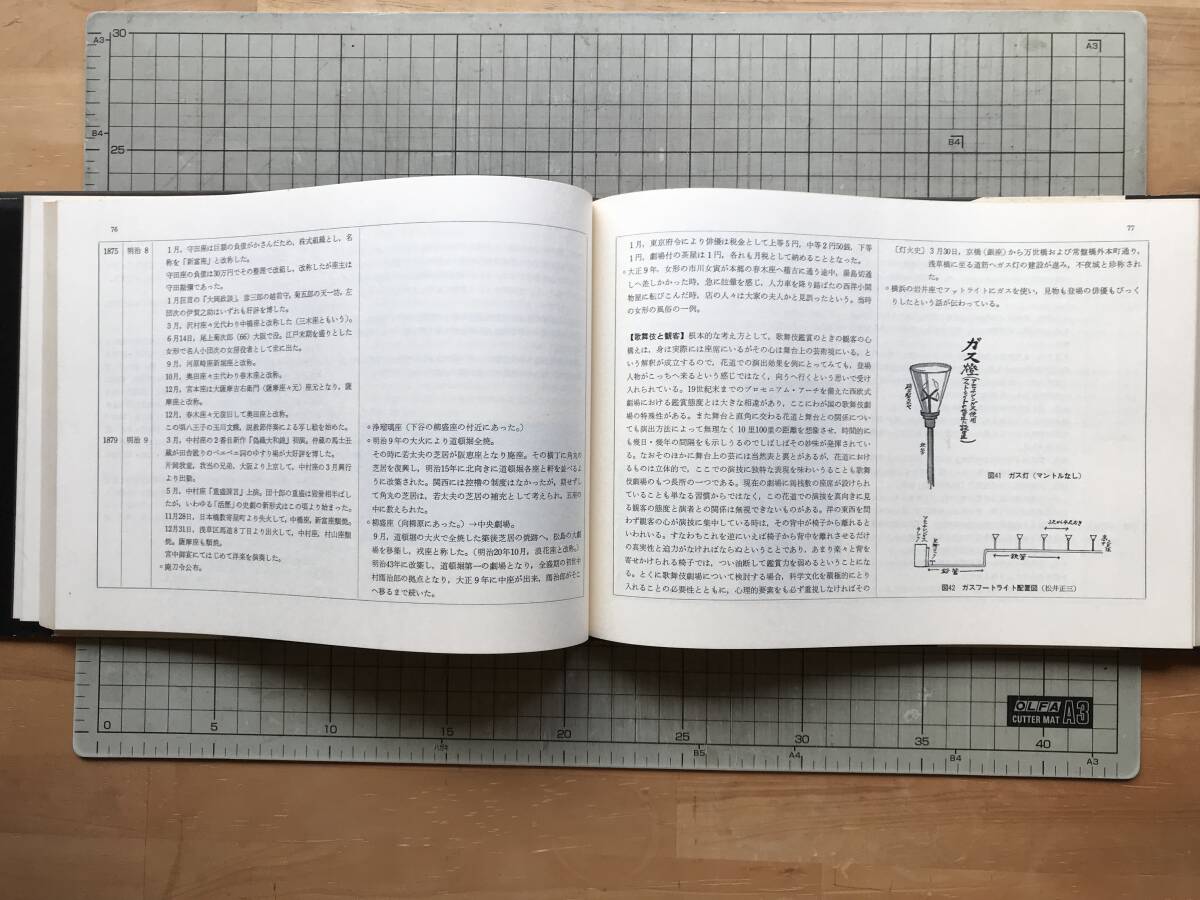 76
1875 明治 8
1月，守田座は巨額の負債がかさんだため，株式組織とし，名
称を「新富座」と改称した。
守田座の負債は30万円でその整理で改組し，改称したが座主は
守田勘彌であった。
1月狂言の『大岡政談』，彦三郎の越前守，菊五郎の天一坊，左
団次の伊賀之助はいずれも好評を博した。
3月，沢村座々元代わり中橋座と改称した（三木座ともいう）。
6月14日，尾上菊次郎（66）大阪で没。江戸末期を盛りとした
女形で名人小団次の女房役者として世に出た。
9月，河原崎座新堀座と改称。
10月，奥田座々主代わり春木座と改称。
12月，宮本座は大薩摩吉右衛門（薩摩座々元）座元となり，薩
摩座と改称。
12月，春木座々元復旧して奥田座と改称。
この頃八王子の玉川文蝶，説教節伴奏による写し絵を始めた。
1879 明治 9
3月，中村座の2番目新作『偽織大和錦』初演。仲蔵の馬士壬
蔵が田舎訛りのベエベエ詞のゆすり場が大好評を博した。
片岡我童，我当の兄弟，大阪より上京して，中村座の3月興行
より出勤。
5月，中村座『重盛諫言』上演。団十郎の重盛は毀誉相半ばし
たが，いわゆる「活歴」の史劇の新形式はこの頃より始まった。
11月28日，日本橋数寄屋町より失火して，中橋座，新富座類焼。
12月31日，浅草区馬道8丁目より出火して，中村座，村山座類
焼。薩摩座も類焼。
宮中御宴にてはじめて洋楽を演奏した。
○廃刀令公布。
○浄瑠璃座（下谷の柳盛座の付近にあった。）
○明治9年の大火により道頓堀全焼。
その時に若太夫の芝居が阪恵座となり廃座。その横丁に角丸の
芝居を復興し，明治15年に北向きに道頓堀各座と軒を並べるよ
うに改築された。関西には控櫓の制度はなかったが，貸せずし
て角丸の芝居は，若太夫の芝居の補充として考えられ，五座の
中に数えられた。
○柳盛座（向柳原にあった。）→中央劇場。
9月，道頓堀の大火で全焼した築後芝居の焼跡へ，松島の大劇
場を移築し，戎座と称した。（明治20年10月，浪花座と改称。）
明治43年に改築し，道頓堀第一の劇場となり，全盛期の初世中
村鴈治郎の拠点となり，大正9年に中座が出来，鴈治郎がそこ
へ移るまで続いた。
77
1月，東京府令により俳優は税金として上等5円，中等2円50銭，下等
1円，劇場付の茶屋は1円，各れも月税として納めることとなった。
○大正9年，女形の市川女寅が本郷の春木座へ稽古に通う途中，湯島切通
しへ差しかかった時，急に泣癪を感じ，人力車を降り路ばたの西洋小間
物屋に転びこんだ時，店の人々は大家の夫人かと見誤ったという。当時
の女形の風俗の一例。
【歌舞伎と観客】根本的な考え方として，歌舞伎鑑賞のときの観客の心
構えは，身は実際には座席にいるがその心は舞台上の芸術境にいる，と
いう解釈が成立するので，花道での演出効果を例にとってみても，登場
人物がこっちへ来るという感じではなく，向うへ行くという思いで受け
入れられている。19世紀末までのプロセニアム・アーチを備えた西欧式
劇場における鑑賞態度とは大きな相違があり，ここにわが国の歌舞伎劇
場の特殊性がある。また舞台と直角に交わる花道と舞台との関係につい
ても演出方法によって無理なく10里100里の距離を想像させ，時間的に
も幾日・幾年の間隔をも示しうるのでしばしばその妙味が発揮されてい
る。なおそのほかに舞台上の芸には当然表と裏とがあるが，花道におけ
るものは立体的で，ここでの演技に独特な表現を味わいうることも歌舞
伎劇場のもつ長所の一つである。現在の劇場に両桟敷の座席が設けられ
ていることも単なる習慣からではなく，この花道での演技を真向きに見
る観客の態度と演者との関係は無視できないものがある。洋の東西を問
わず観客の心が演技に集中している時は，その背中が椅子から離れると
いわれいる。すなわちこれを逆にいえば椅子から背中を離れさせるだけ
の真実性と迫力がなければならぬということであり，あまり楽々と背を
寄せかけられる椅子では，つい油断して鑑賞力を弱めるということにな
る。とくに歌舞伎劇場について検討する場合，科学文化を積極的にとり
入れることの必要性とともに，心理的要素をも必ず重視しなければその
〔灯火史〕3月30日，京橋（銀座）から万世橋および常盤橋外本町通り，
浅草橋に至る道筋へガス灯の建設が進み，不夜城と珍称され
た。
○横浜の岩井座でフットライトにガスを使い，見物も登場の俳優もびっく
りしたという話が伝わっている。
ガス燈
鉄管
図41 ガス灯（マントルなし）
鉄管
鉛管
図42 ガスフートライト配置図（松井正三）
A3 30
B4
25
A3
B4
0 5 10 15 20 25 30 35 40
B5
A4
B4
A3
OLFA
CUTTER MAT A3